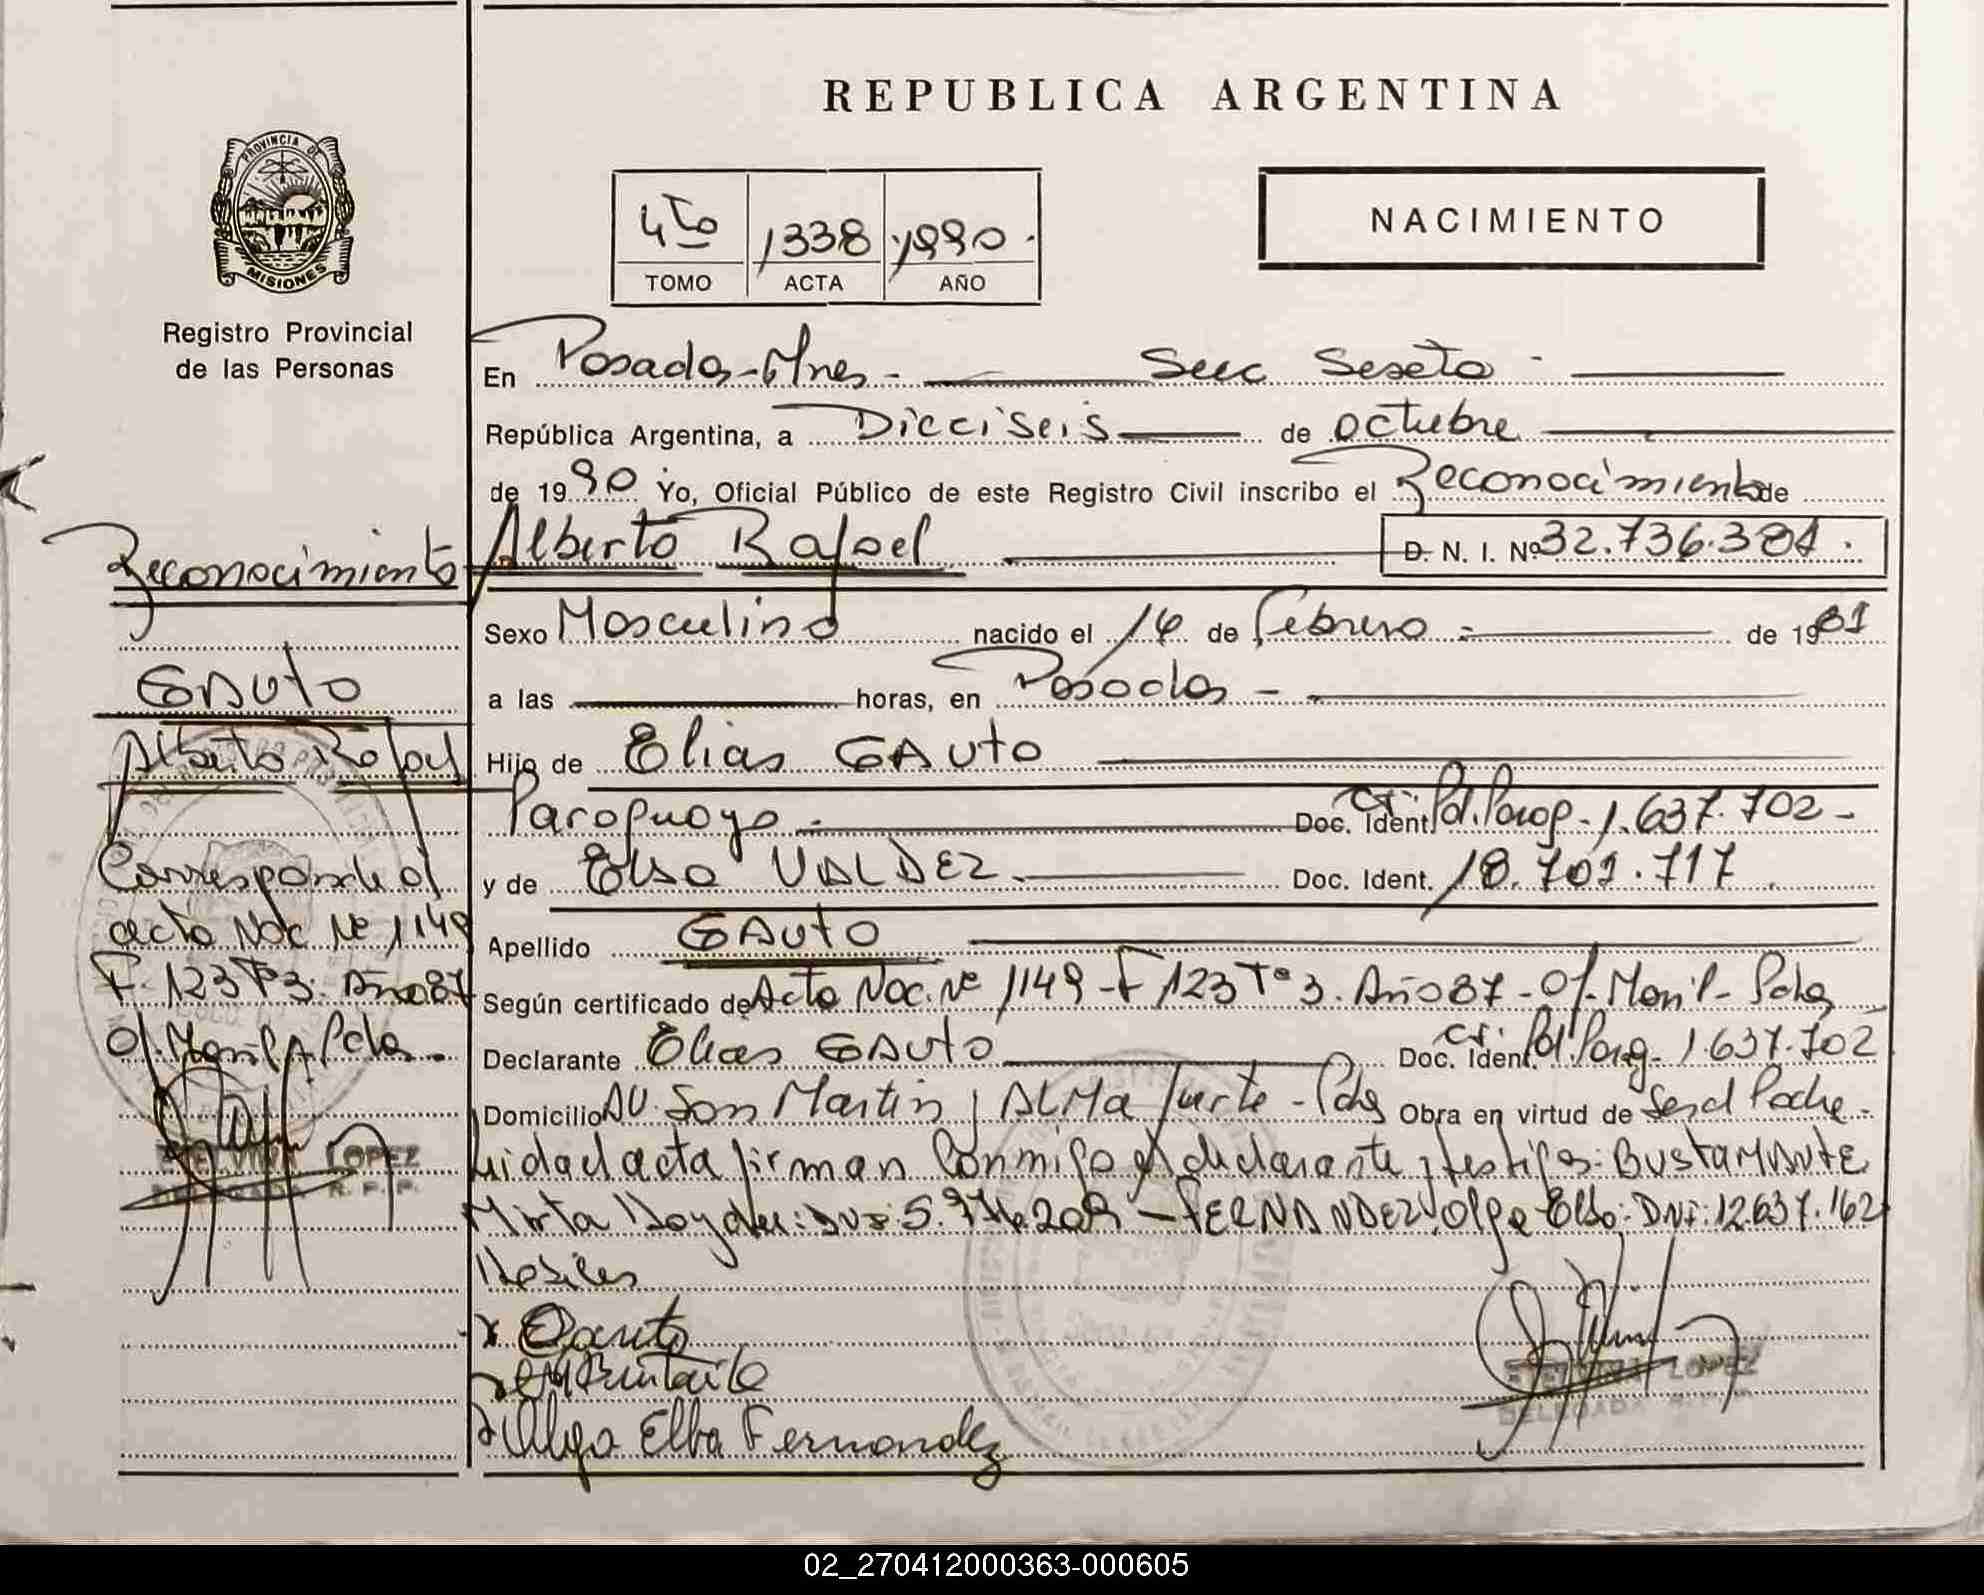 REPUBLICA ARGENTINA
PROVINCIA DE MISIONES
4to 1338 1990.
TOMO ACTA AÑO
NACIMIENTO
Registro Provincial
de las Personas
En Posadas-Mnes - Secc Sexta -
República Argentina, a Dieciseis de octubre
de 1990 Yo, Oficial Público de este Registro Civil inscribo el Reconocimiento de
Alberto Rafael D. N. I. Nº 32.736.381.
Sexo Masculino nacido el 14 de Febrero - de 1981
a las horas, en Posadas -
Hijo de Elias GAuto
Paraguayo - Doc. Ident. Pol. Parag - 1.637.702 -
y de Elsa VALDEZ. Doc. Ident. 18.701.717
Apellido GAuto
Según certificado de Acta Nac. Nº 1149 - F 123 Tº 3. Año 87 - Of. - Pdas
Declarante Elias GAuto Doc. Ident. Pol. Parag - 1.637.702
Domicilio AV. San Martin y ALMA fuerte - Pdas Obra en virtud de Ser el Padre -
Leida el acta firman Conmigo el declarante y testigos: BUSTAMANTE
Mirta FERNANDEZ Olga Elba: DNI: 12.637.162
Habiles
x EGauto
x
x Olga Elba Fernandez
LOPEZ
DELEGADA
Reconocimiento
GAUTO
Alberto Rafael
Corresponde al
acta Nac Nº 1149
F. 123 Tº 3. Año 87
Of. Pdas.
LOPEZ
DELEGADA R. P. P.
02_270412000363-000605